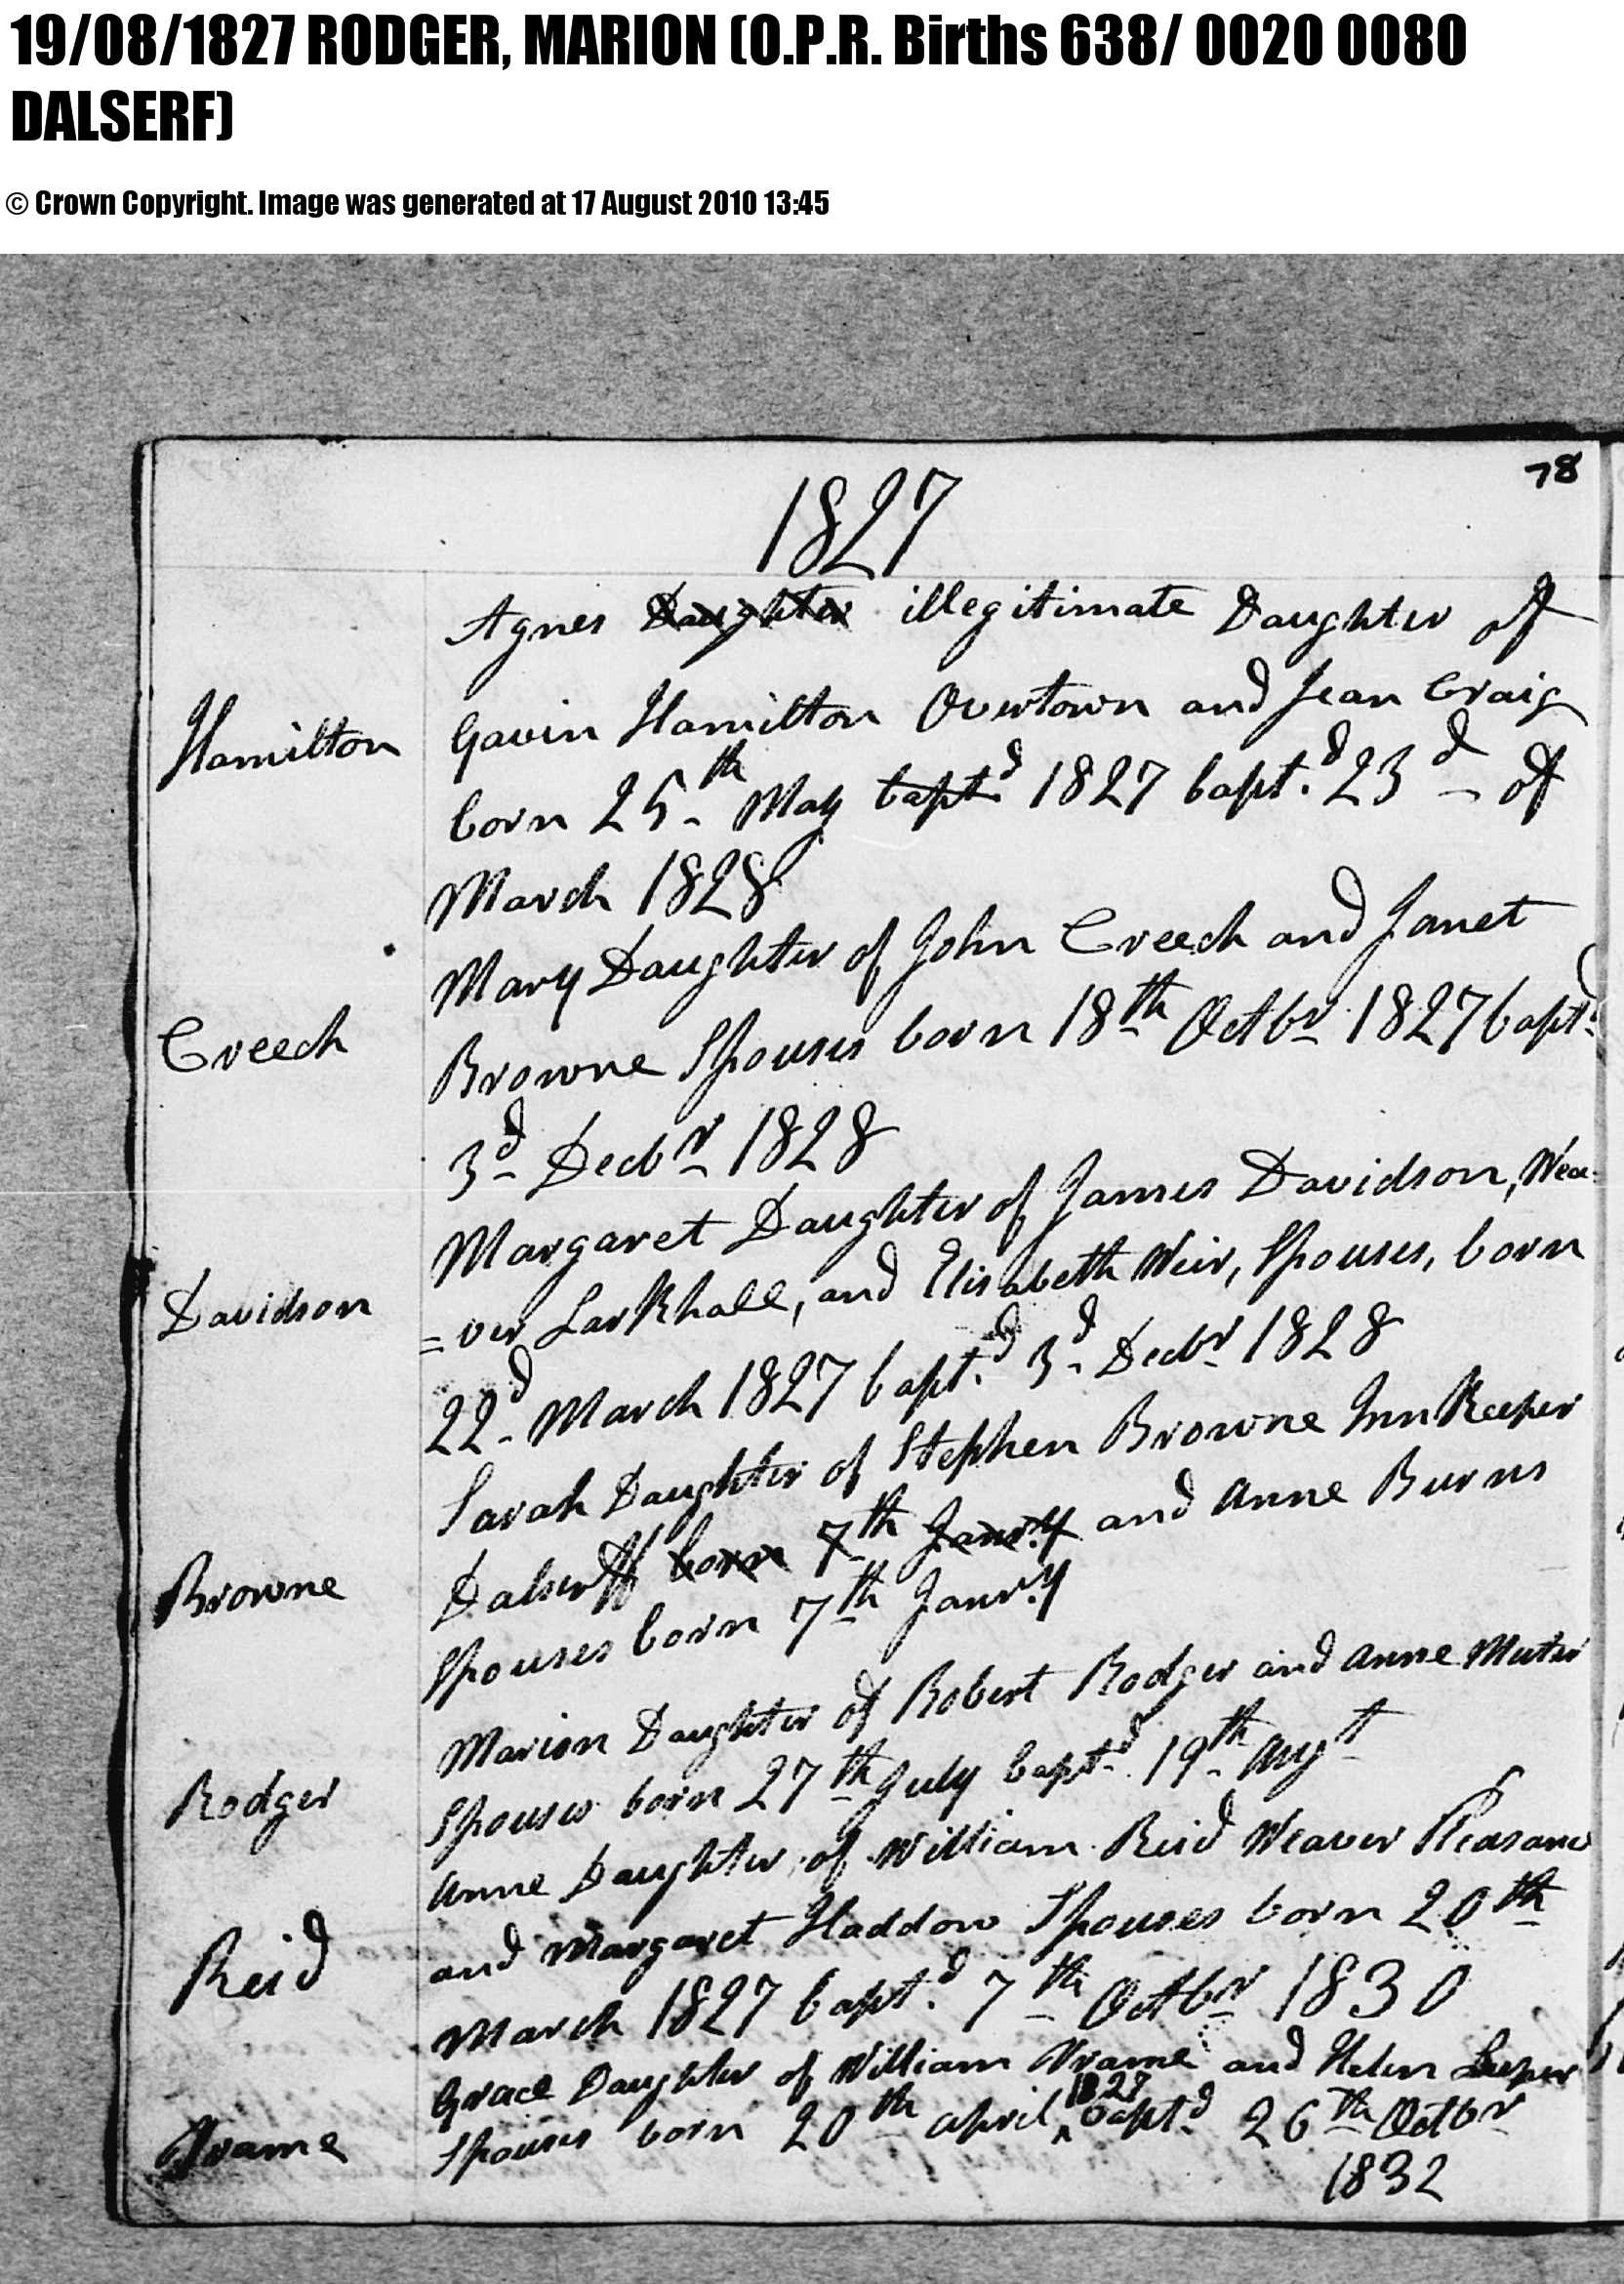 19/08/1827 RODGER, MARION (O.P.R. Births 638/ 0020 0080
DALSERF)
© Crown Copyright. Image was generated at 17 August 2010 13:45
78
1827
Agnes Daughter illegitimate Daughter of
Hamilton Gavin Hamilton Overtown and Jean Craig
born 25th May baptd 1827 bapt.d 23d of
March 1828
Mary Daughter of John Creech and Janet
Creech Browne Spouses born 18th Octbr 1827 baptd
3d Decbr 1828
Margaret Daughter of James Davidson, Wea-
Davidson =ver Larkhall, and Elisabeth Weir, Spouses, born
22d March 1827 bapt.d 3d Decbr 1828
Sarah Daughter of Stephen Browne InnKeeper
Browne Dalserff born 7th Janr.y and Anne Burns
Spouses born 7th Janr.y
Marion Daughter of Robert Rodger and Anne Muter
Rodger Spouses born 27th July baptd 19th Augt
Anne Daughter of William Reid Weaver
Reid and Margaret Haddow Spouses born 20th
March 1827 bapt.d 7th Octbr 1830
Grace Daughter of William Frame and Helen
Frame Spouses born 20th April 1827 baptd 26th Octbr
1832